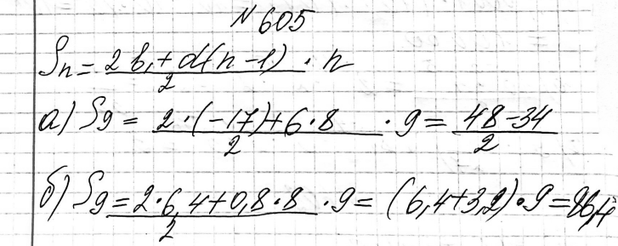 N 605
Sn = (2b₁ + d(n-1))/2 · n
а) S9 = (2·(-17)+6·8)/2 · 9 = (48-34)/2
б) S9 = (2·6,4+0,8·8)/2 · 9 = (6,4+3,2)·9 = 86,4